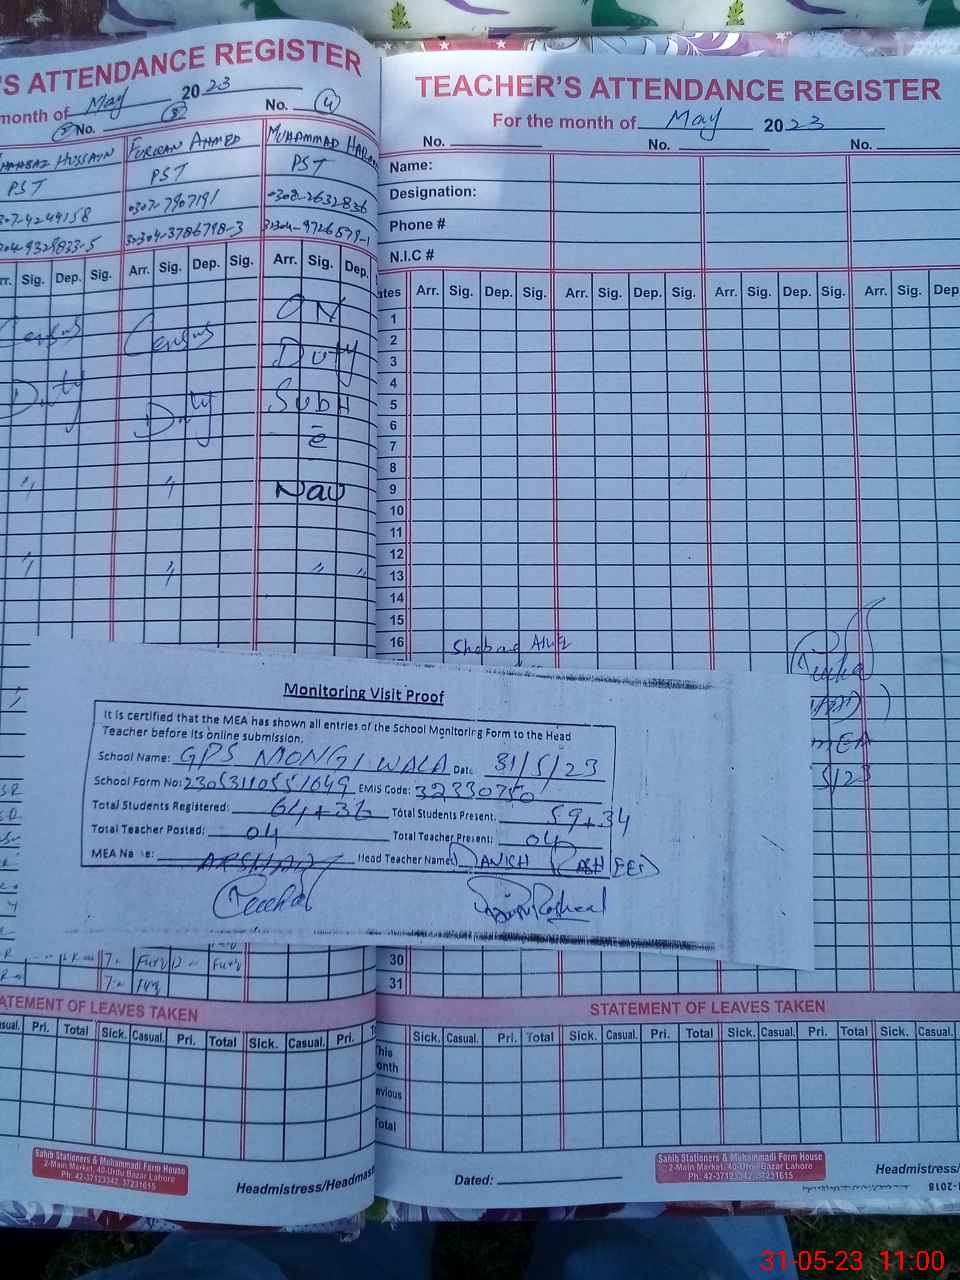 'S ATTENDANCE REGISTER
month of May 2023
No. 3 No. 4
HUSSAIN FURQAN AHMED MUHAMMAD
PST PST PST
07-4244158 0307-7907191 0308-2632836
04-9329833-5 32304-3786798-3 32304-9726879-1
Arr. Sig. Dep. Sig. Arr. Sig. Dep. Sig. Arr. Sig. Dep.
Census Census ON
Duty Duty Duty
Nay
TEACHER'S ATTENDANCE REGISTER
For the month of May 2023
No. No. No.
Name:
Designation:
Phone #
N.I.C #
ates Arr. Sig. Dep. Sig. Arr. Sig. Dep. Sig. Arr. Sig. Dep. Sig. Arr. Sig. Dep
1
2
3
4
5
6
7
8
9
10
11
12
13
14
15
16
MEA
5/23
Monitoring Visit Proof
It is certified that the MEA has shown all entries of the School Monitoring Form to the Head
Teacher before its online submission.
School Name: GPS MONGI WALA Date 31/5/23
School Form No: 23053110551049 EMIS Code: 32330750
Total Students Registered: 64+36 Total Students Present: 59+34
Total Teacher Posted: 04 Total Teacher Present: 04
MEA Na e: ARSHAD Head Teacher Name: DANISH RASHEED
30
31
STATEMENT OF LEAVES TAKEN
Casual. Pri. Total Sick. Casual. Pri. Total Sick. Casual. Pri.
STATEMENT OF LEAVES TAKEN
Sick. Casual. Pri. Total Sick. Casual. Pri. Total Sick. Casual. Pri. Total Sick. Casual.
This
onth
evious
Total
Sahib Stationers & Mohammadi Form House
2-Main Market, 40-Urdu Bazar Lahore
Ph: 42-37123342, 37231615
Headmistress/Headmas
Dated:
Sahib Stationers & Mohammadi Form House
2-Main Market, 40-Urdu Bazar Lahore
Ph: 42-37123342, 37231615
Headmistress/
31-05-23 11:00